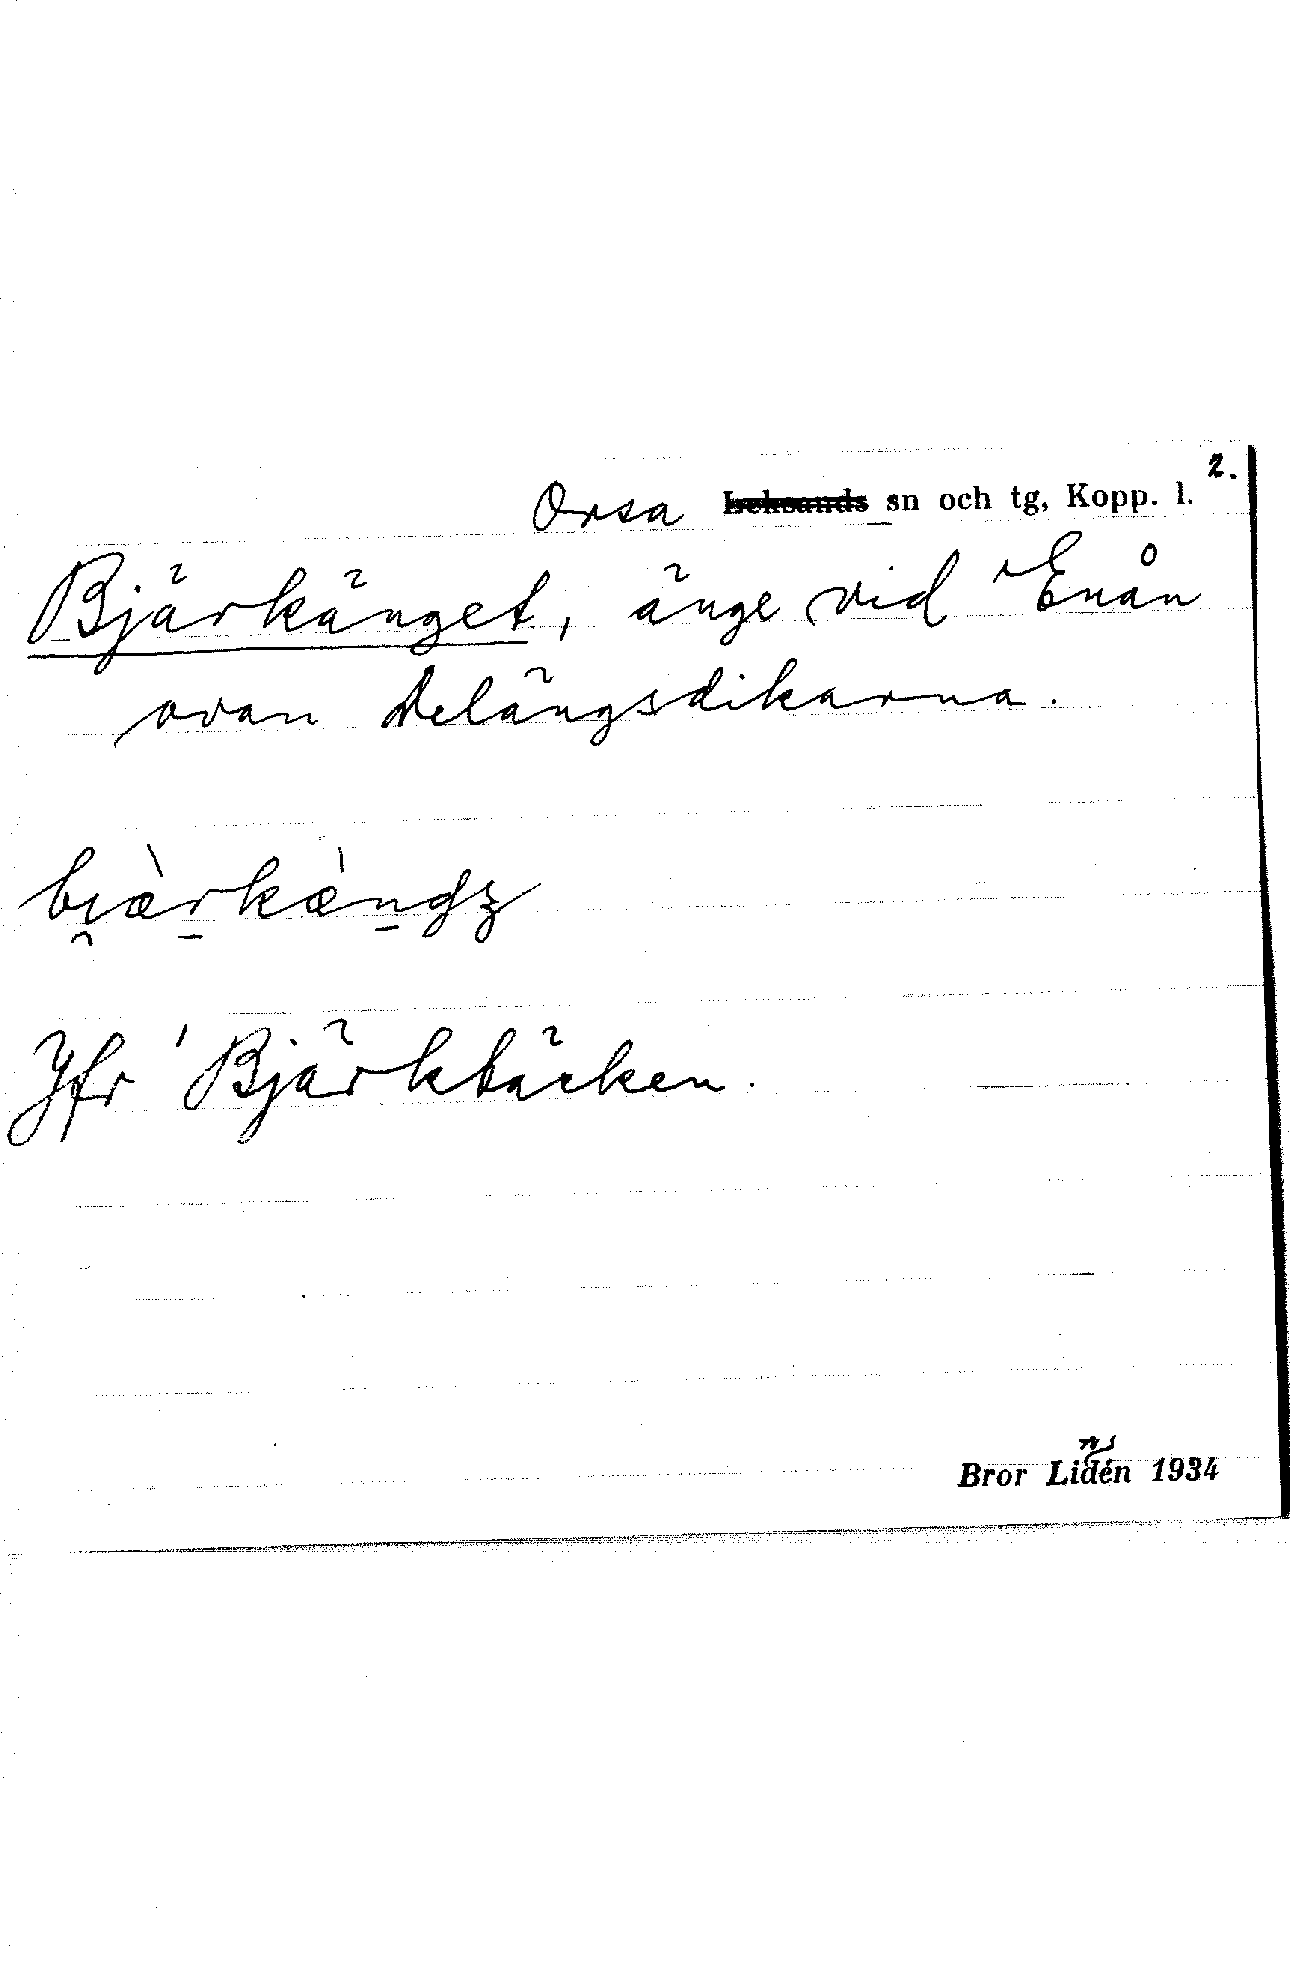 2.
Orsa Leksands sn och tg, Kopp. l.
Bjärkänget, änge vid Enån
ovan Delängsdikarna.
Jfr Bjärkbäcken.
Bror Lidén 1934